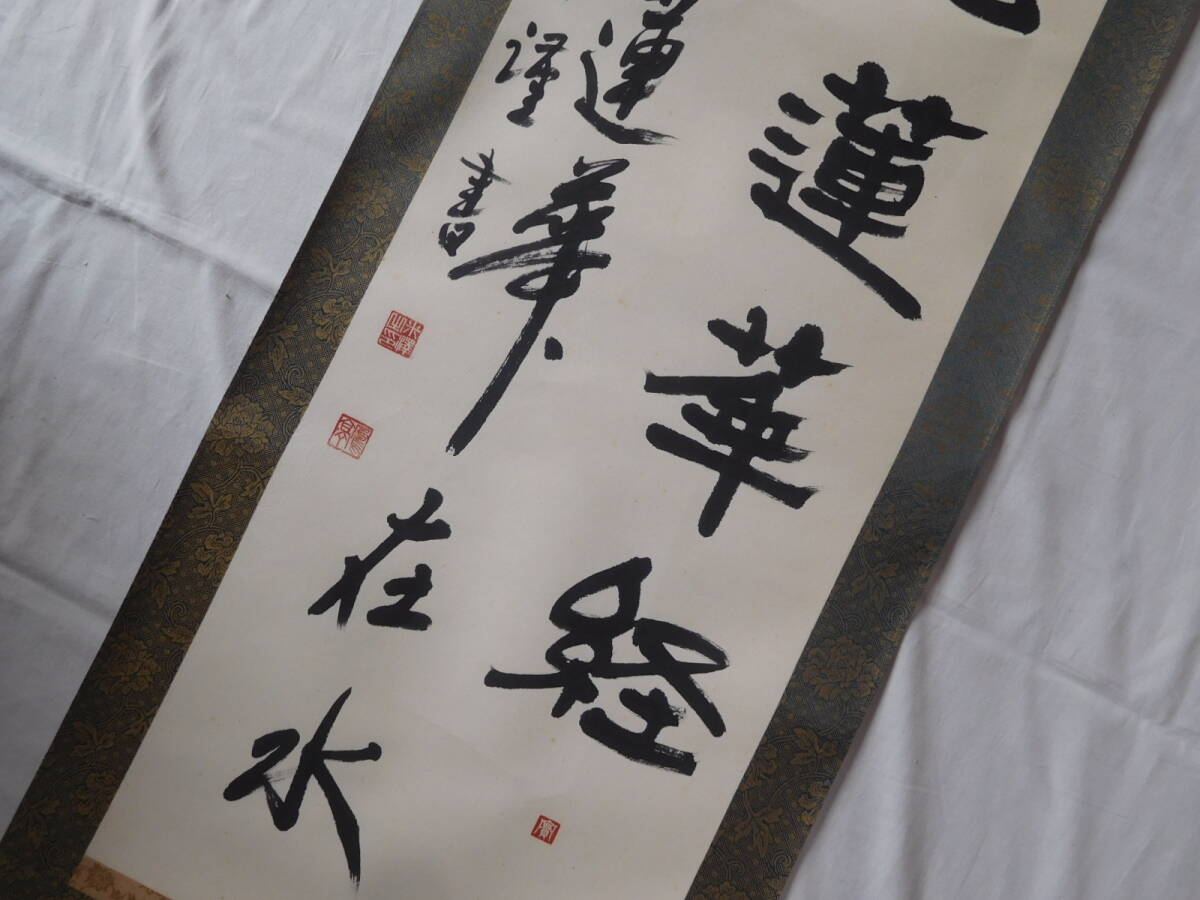 蓮華経
蓮華在水
謹書